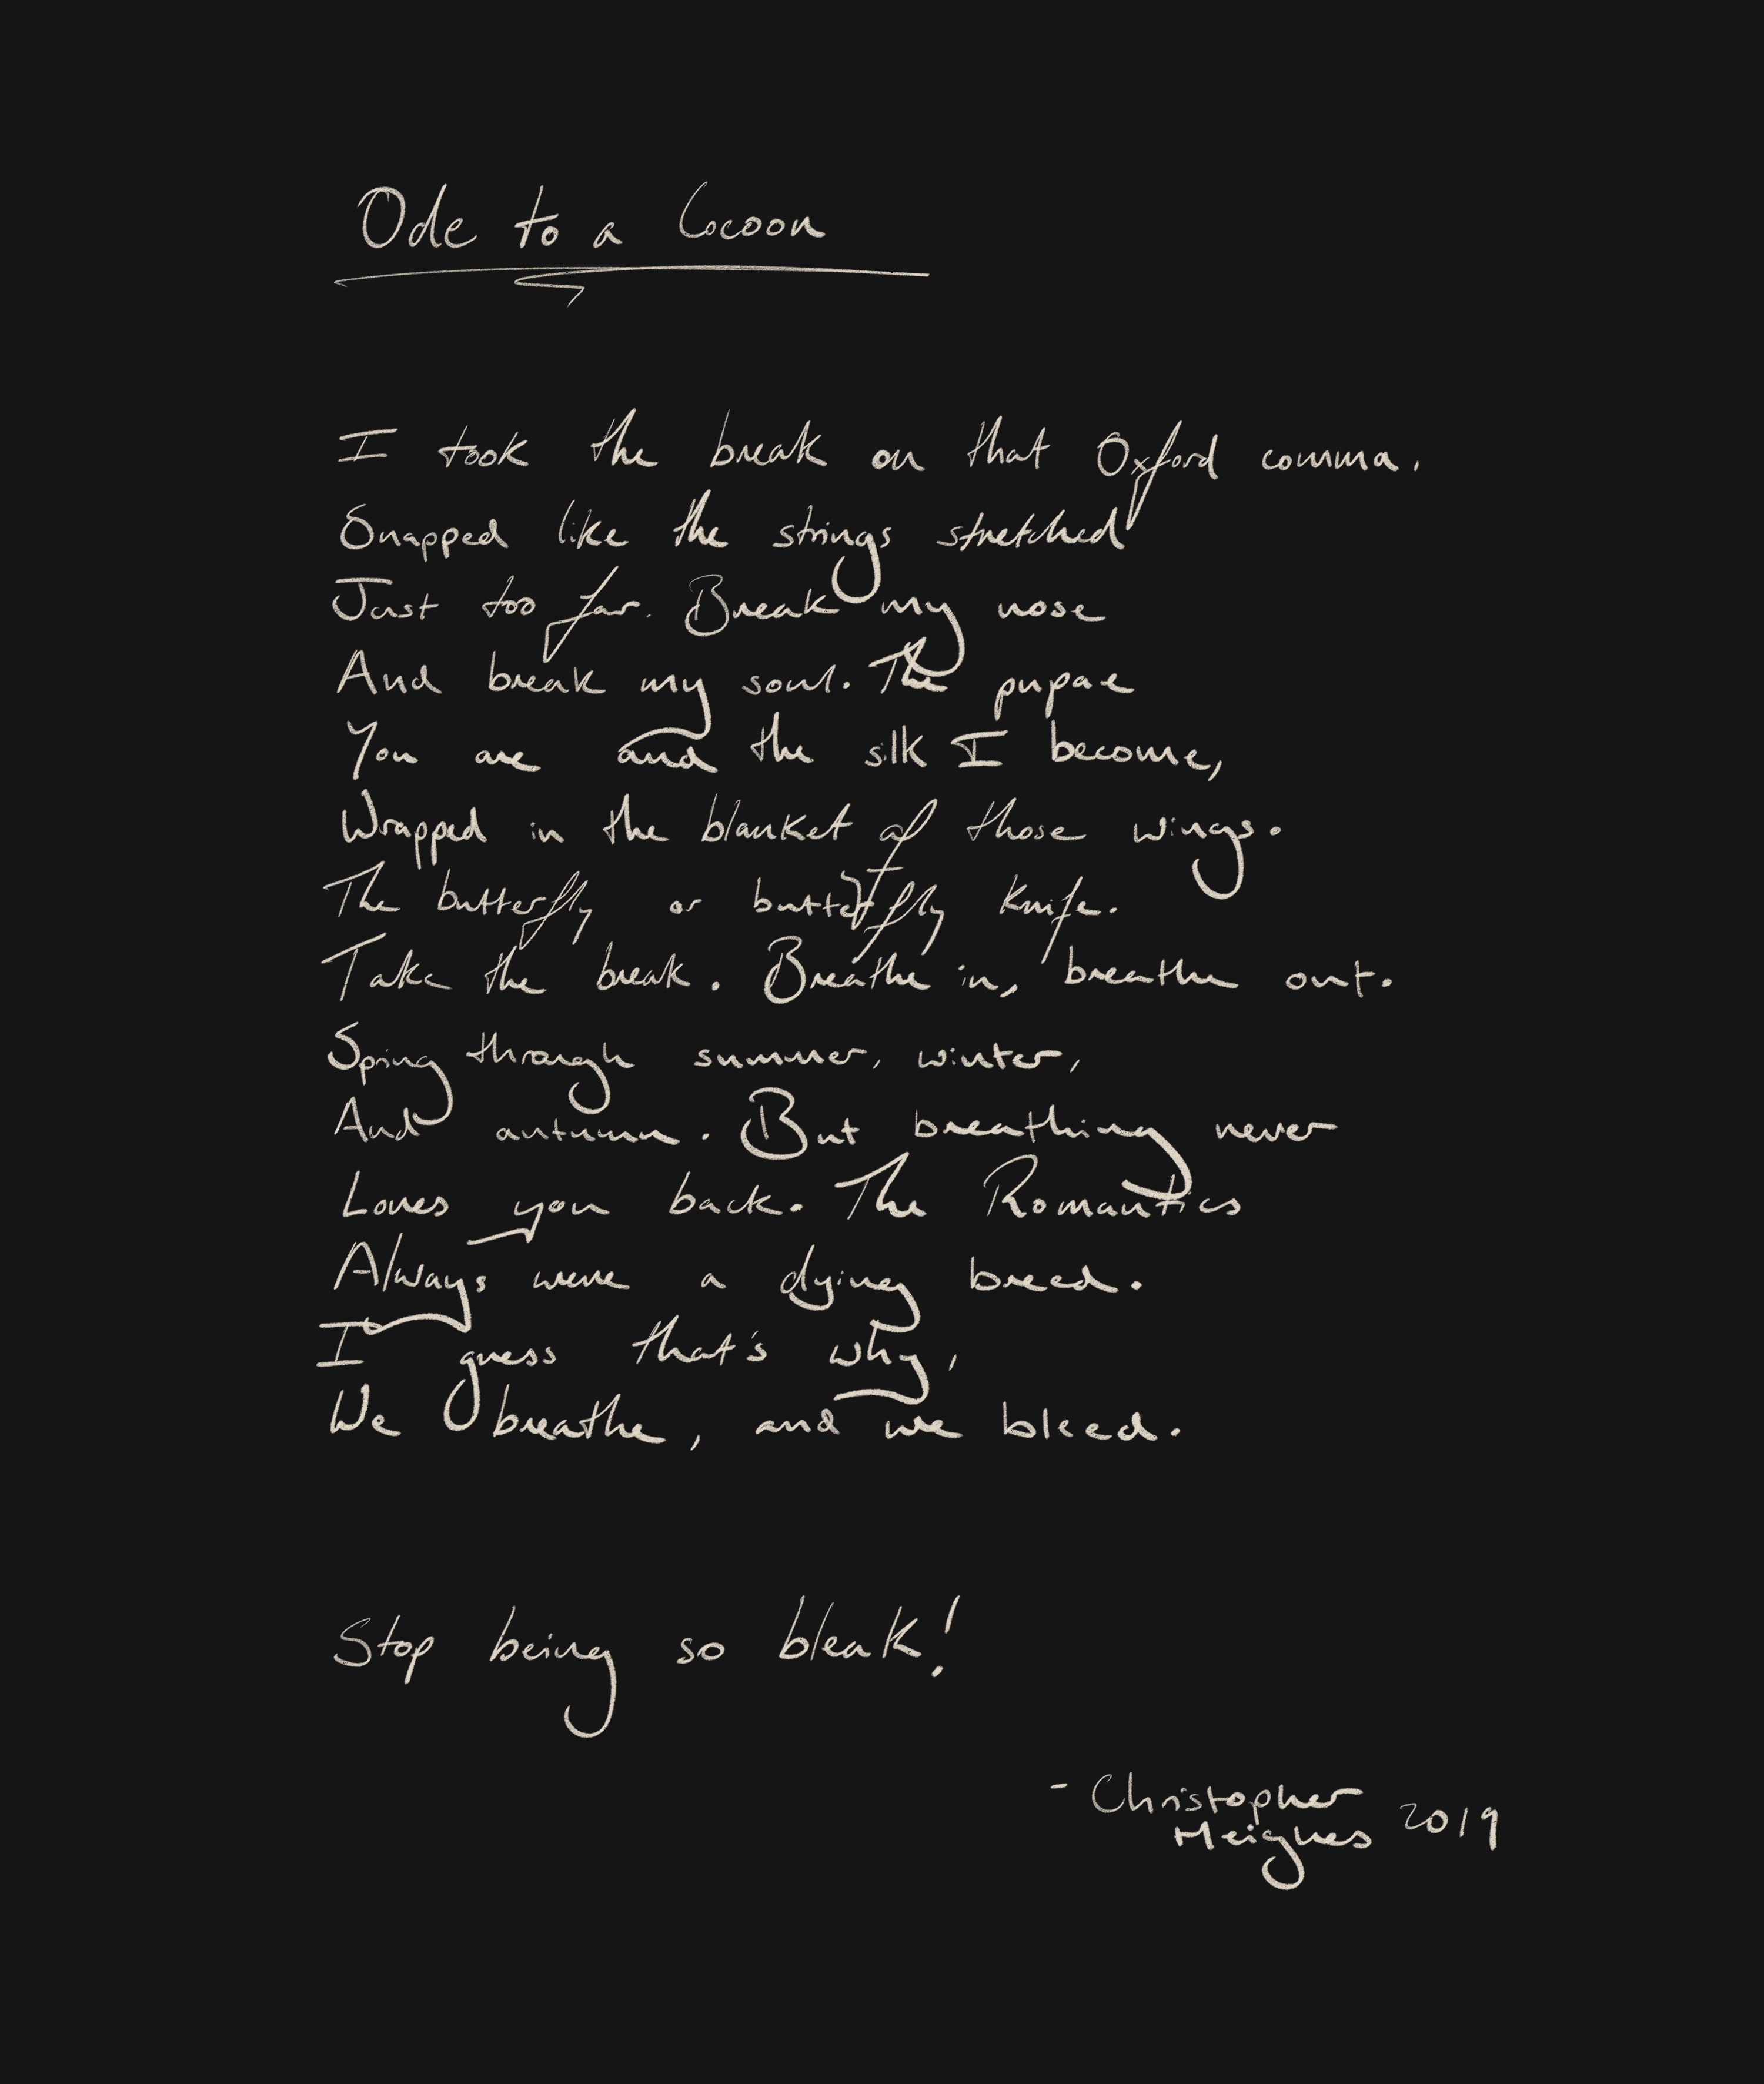 Ode to a Cocoon
I took the break on that Oxford comma.
Snapped like the strings stretched
Just too far. Break my nose
And break my soul. The pupae
You are and the silk I become,
Wrapped in the blanket of those wings.
The butterfly or butterfly knife.
Take the break. Breathe in, breathe out.
Spring through summer, winter,
And autumn. But breathing never
Loves you back. The Romantics
Always were a dying breed.
I guess that's why,
We breathe, and we bleed.
Stop being so bleak!
- Christopher
Meignes 2019